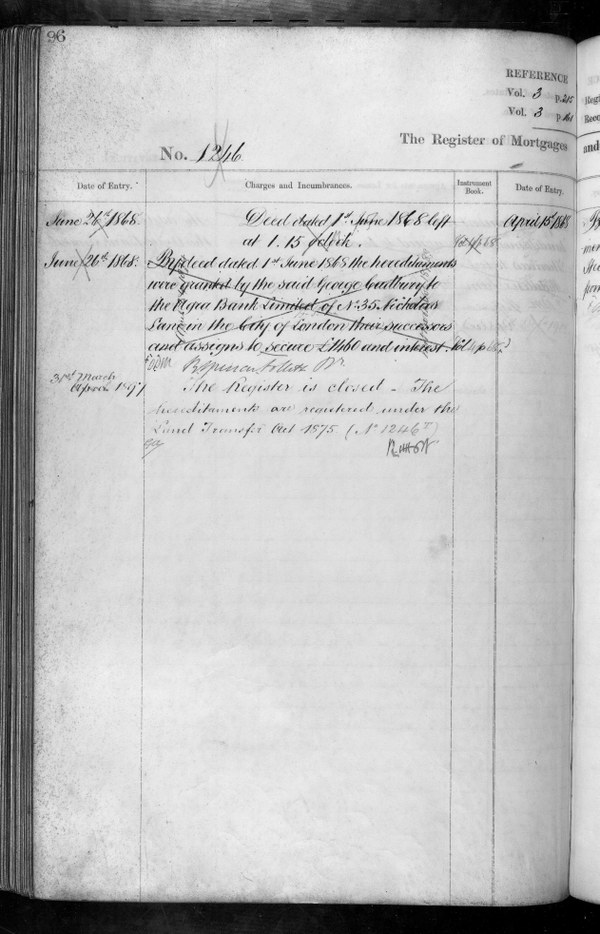 96
REFERENCE
Vol. 3 p. 215
Vol. 3 p. 161
The Register of Mortgages
No. 1246
Date of Entry.
Charges and Incumbrances.
Instrument Book.
Date of Entry.
June 26th 1868.
Deed dated 1st June 1868 left
April 15th 1868
at 1.15 o'clock.
June 26th 1868.
By deed dated 1st June 1868 the hereditaments
were granted by the said George Cudbury to
the Agra Bank Limited of No. 35. Nicholas
Lane in the City of London their successors
and assigns to secure £1460 and interest.
31st March
The Register is closed - The
hereditaments are registered under the
Land Transfer Act 1875 (No 1246
and